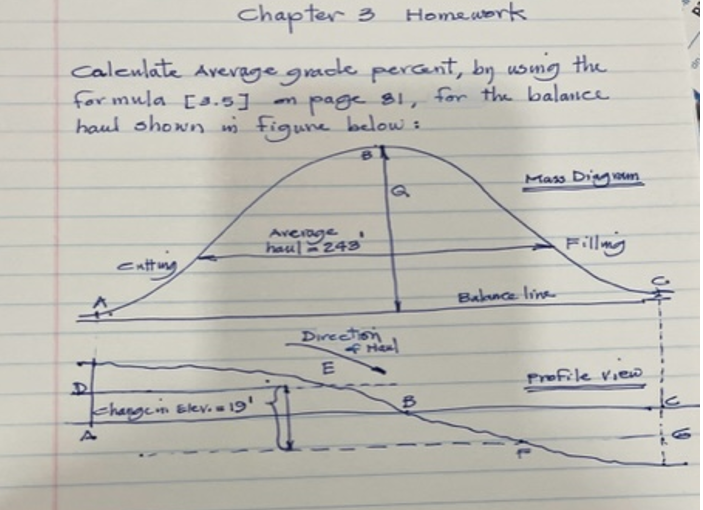 Chapter 3 Homework
Calculate Average grade percent, by using the
formula [3.5] on page 81, for the balance
haul shown in figure below:
B
Mass Diagram
Q
Average
haul = 243'
Filling
Cutting
C
A
Balance line
Direction
of Haul
E
Profile view
D
Change in Elev. = 19'
B
C
A
G
F